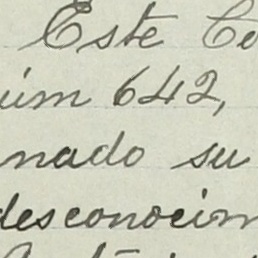 Este Ce
úm 642,
nado su
desconocim